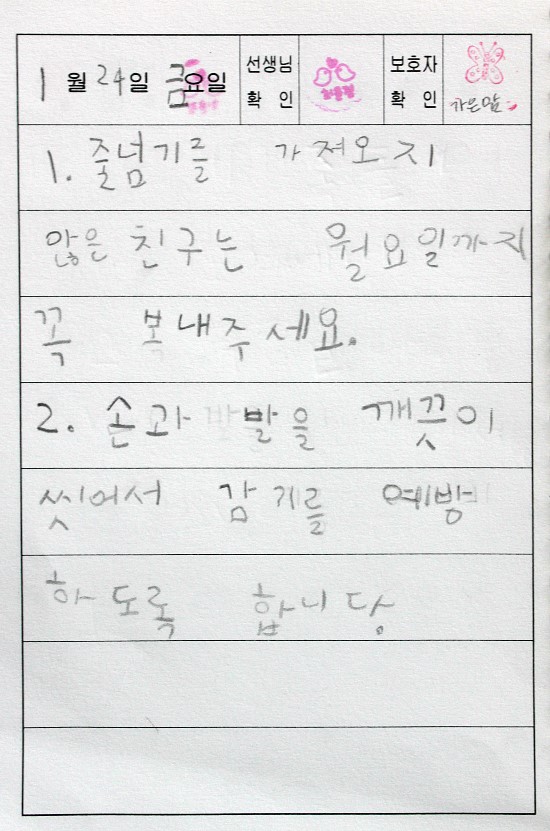 1월 24일 금요일 선생님 확인 보호자 확인
1. 줄넘기를 가져오지
않은 친구는 월요일까지
꼭 복내주세요.
2. 손과 발을 깨끗이
씻어서 감기를 예방
하도록 합니당.